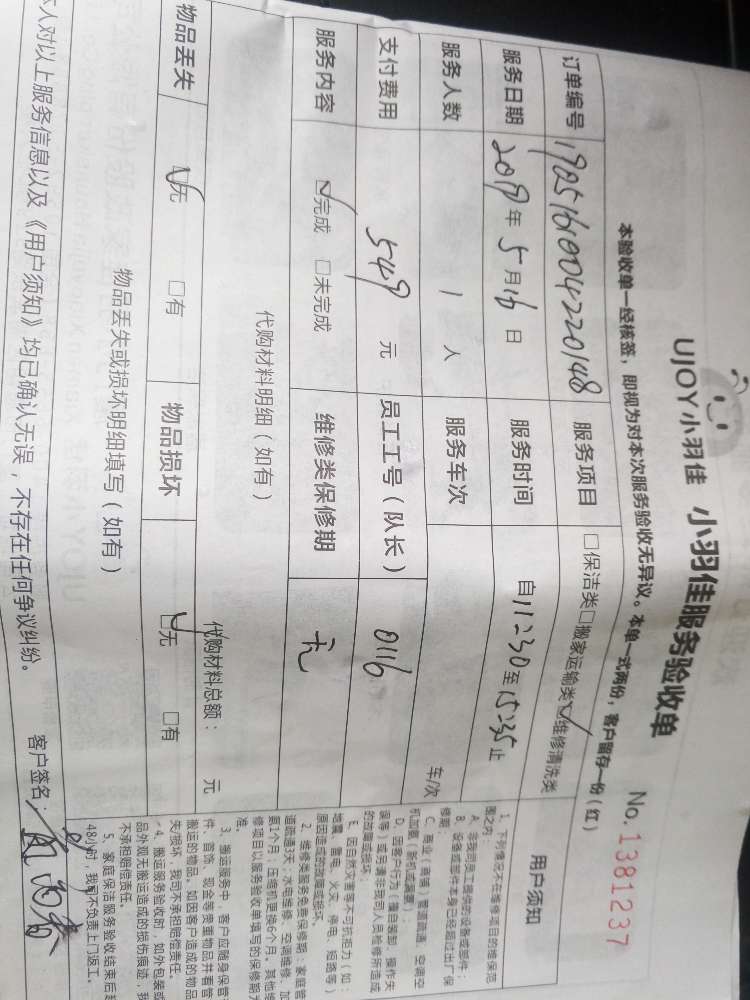 UJOY小羽佳 小羽佳服务验收单
No.1381237
本验收单一经核签，即视为对本次服务验收无异议。本单一式两份，客户留存一份（红）
订单编号 1905161004220148 服务项目 □保洁类□搬家运输类☑维修清洗类
服务日期 2019年5月16日 服务时间 自11:30至15:35止
服务人数 1 人 服务车次 车/次
支付费用 549 元 员工工号（队长） 0116
服务内容 ☑完成 □未完成 维修类保修期 无
代购材料明细（如有）
代购材料总额： 元
物品丢失 ☑无 □有 物品损坏 ☑无 □有
物品丢失或损坏明细填写（如有）
本人对以上服务信息以及《用户须知》均已确认无误，不存在任何争议纠纷。 客户签名：
用户须知
1、下列情况不在维修项目的维保范
围之内：
A、非我司员工提供的设备或部件；
B、设备或部件本身已经超过出厂保
修期；
C、商业（商铺）管道疏通、空调空
机加氨（新机或漏氨）；
D、因客户行为（擅自强卸、操作失
误等）或另请非我司人员检修所造成
的故障或损坏
E、因自然灾害等不可抗拒力（如：
地震、雷电、火灾、停电、短路等）
原因造成的故障或损坏。
2、维修类服务免费保修期：家庭管
道疏通3天；水电维修、空调维修、加
氨1个月；压缩机更换6个月。其他维
修项目以服务验收单填写的保修期为
准。
3、搬运服务中，客户应随身保管
件、首饰、现金等贵重物品并看管
搬运的物品，如因客户造成的物品
失/损坏，我司不承担赔偿责任。
4、搬运服务验收时，如外包装或
品外观无搬运造成的损伤痕迹，我
不承担赔偿责任。
5、家庭保洁服务验收结束后超
48小时，我司不负责上门返工。